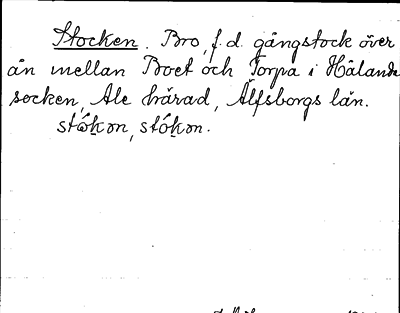 Stocken. Bro, f.d. gångstock över
ån mellan Boet och Torpa i Hålanda
socken, Ale härad, Älfsborgs län.
stókon, stókon.